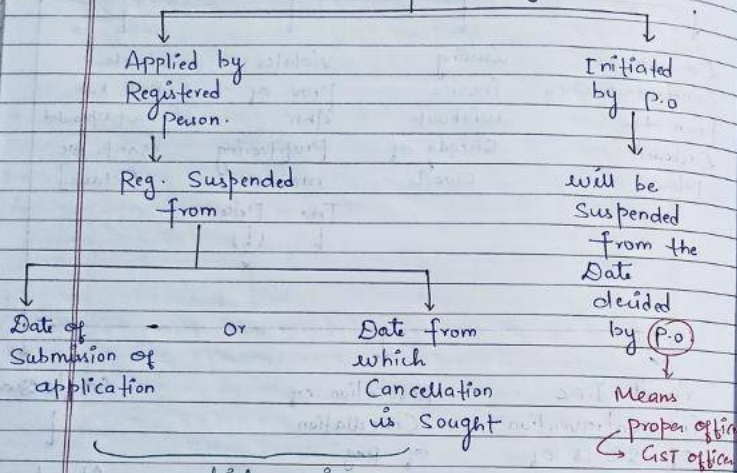 Applied by
Registered
Person.
Reg. Suspended
from
Date of
Submission of
application
Or
Date from
which
Cancellation
is Sought
Initiated
by P.O
will be
Suspended
from the
Date
decided
by P.O
Means
proper offic
GST officer